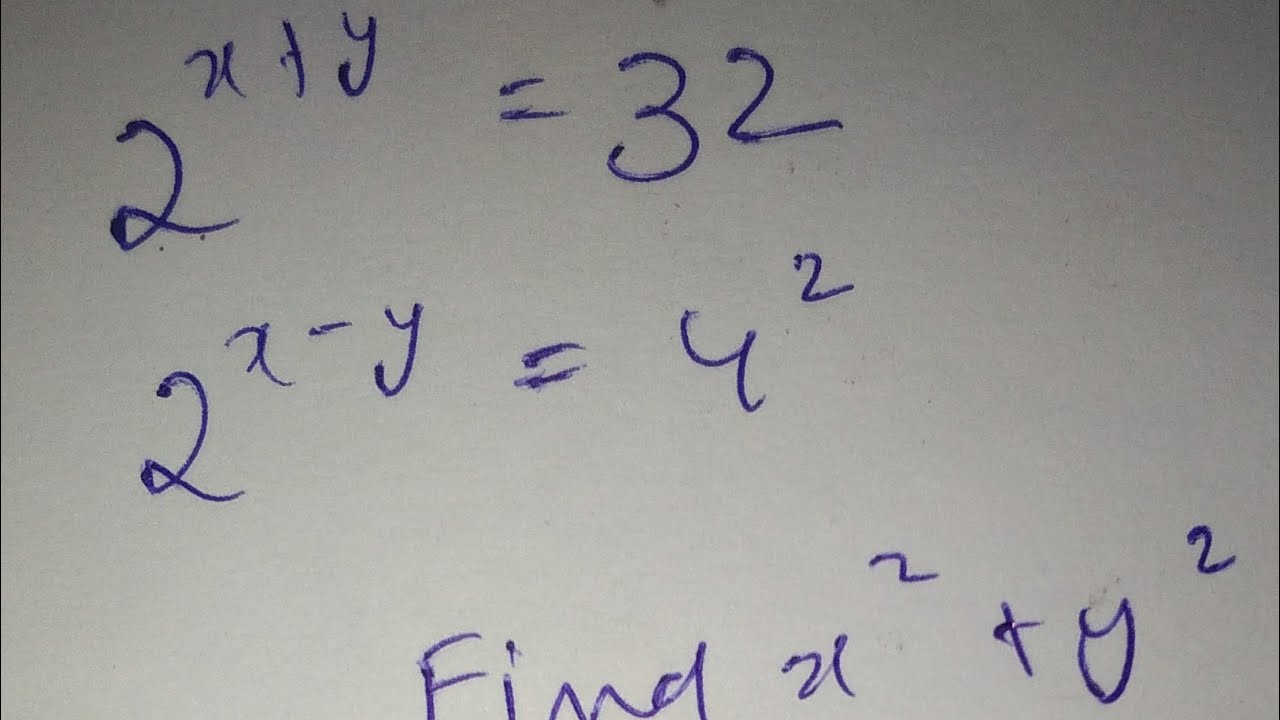 2^{x+y} = 32
2^{x-y} = 4^2
Find x^2 + y^2